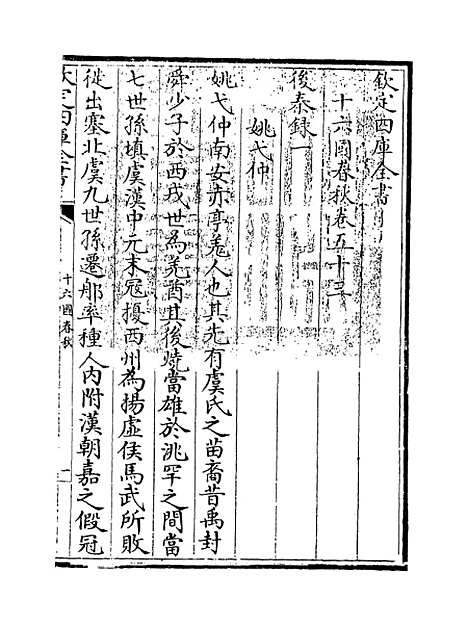 欽定四庫全書
十六國春秋卷五十三
後秦録一
姚弋仲
姚弋仲南安赤亭羌人也其先有虞氏之苗裔昔禹封
舜少子於西戎世為羌酋其後燒當雄於洮罕之間當
七世孫填虞漢中元末寇擾西州為揚虛侯馬武所敗
徙出塞北虞九世孫遷郍率種人内附漢朝嘉之假冠
欽定四庫全書
十六國春秋
一